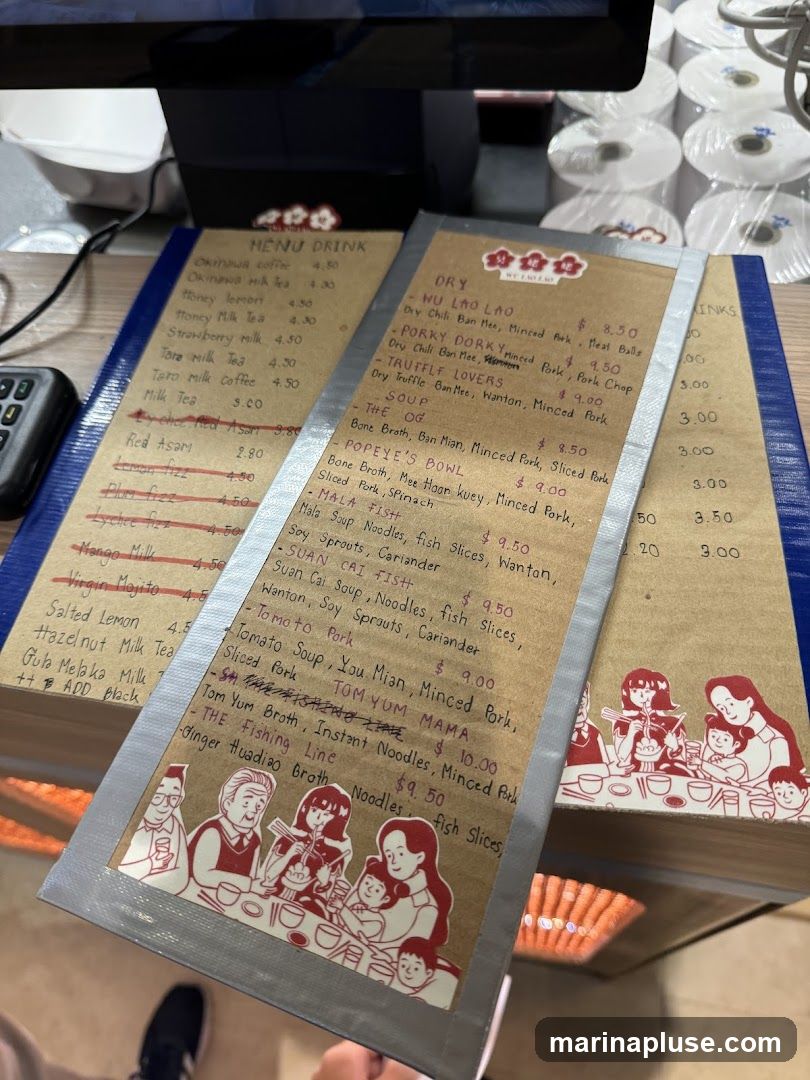 MENU DRINK
Okinawa coffee 4.50
Okinawa milk Tea 4.50
Honey lemon 4.50
Honey Milk Tea 4.50
Strawberry milk 4.50
Taro milk Tea 4.50
Taro milk coffee 4.50
Milk Tea 3.00
Lychee Red Asam 3.80
Red Asam 2.80
Lemon fizz 4.50
Plum fizz 4.50
Lychee fizz 4.50
Mango Milk 4.50
Virgin Mojito 4.5
Salted Lemon 4.5
Hazelnut Milk Tea
Gula Melaka Milk T
ADD Black
WU LAO LAO
DRY
- WU LAO LAO $ 8.50
Dry Chili Ban Mee, Minced Pork, Meat Balls
- PORKY DORKY $ 9.50
Dry Chili Ban Mee, Minced Pork, Pork Chop
- TRUFFLE LOVERS $ 9.00
Dry Truffle Ban Mee, Wanton, Minced Pork
SOUP
- THE OG $ 8.50
Bone Broth, Ban Mian, Minced Pork, Sliced Pork
- POPEYE'S BOWL $ 9.00
Bone Broth, Mee Hoon Kuey, Minced Pork,
Sliced Pork, Spinach
- MALA FISH $ 9.50
Mala Soup Noodles, fish Slices, Wanton,
Soy Sprouts, Cariander
- SUAN CAI FISH $ 9.50
Suan Cai Soup, Noodles, fish Slices,
Wanton, Soy Sprouts, Cariander
- Tomato Pork $ 9.00
Tomato Soup, You Mian, Minced Pork,
Sliced Pork
TOM YUM MAMA $ 10.00
Tom Yum Broth, Instant Noodles, Minced Pork
- THE Fishing Line $9.50
Ginger Huadiao Broth, Noodles, fish Slices,
INKS
3.00
3.00
3.00
3.00
.50 3.50
2.20 3.00
marinapluse.com